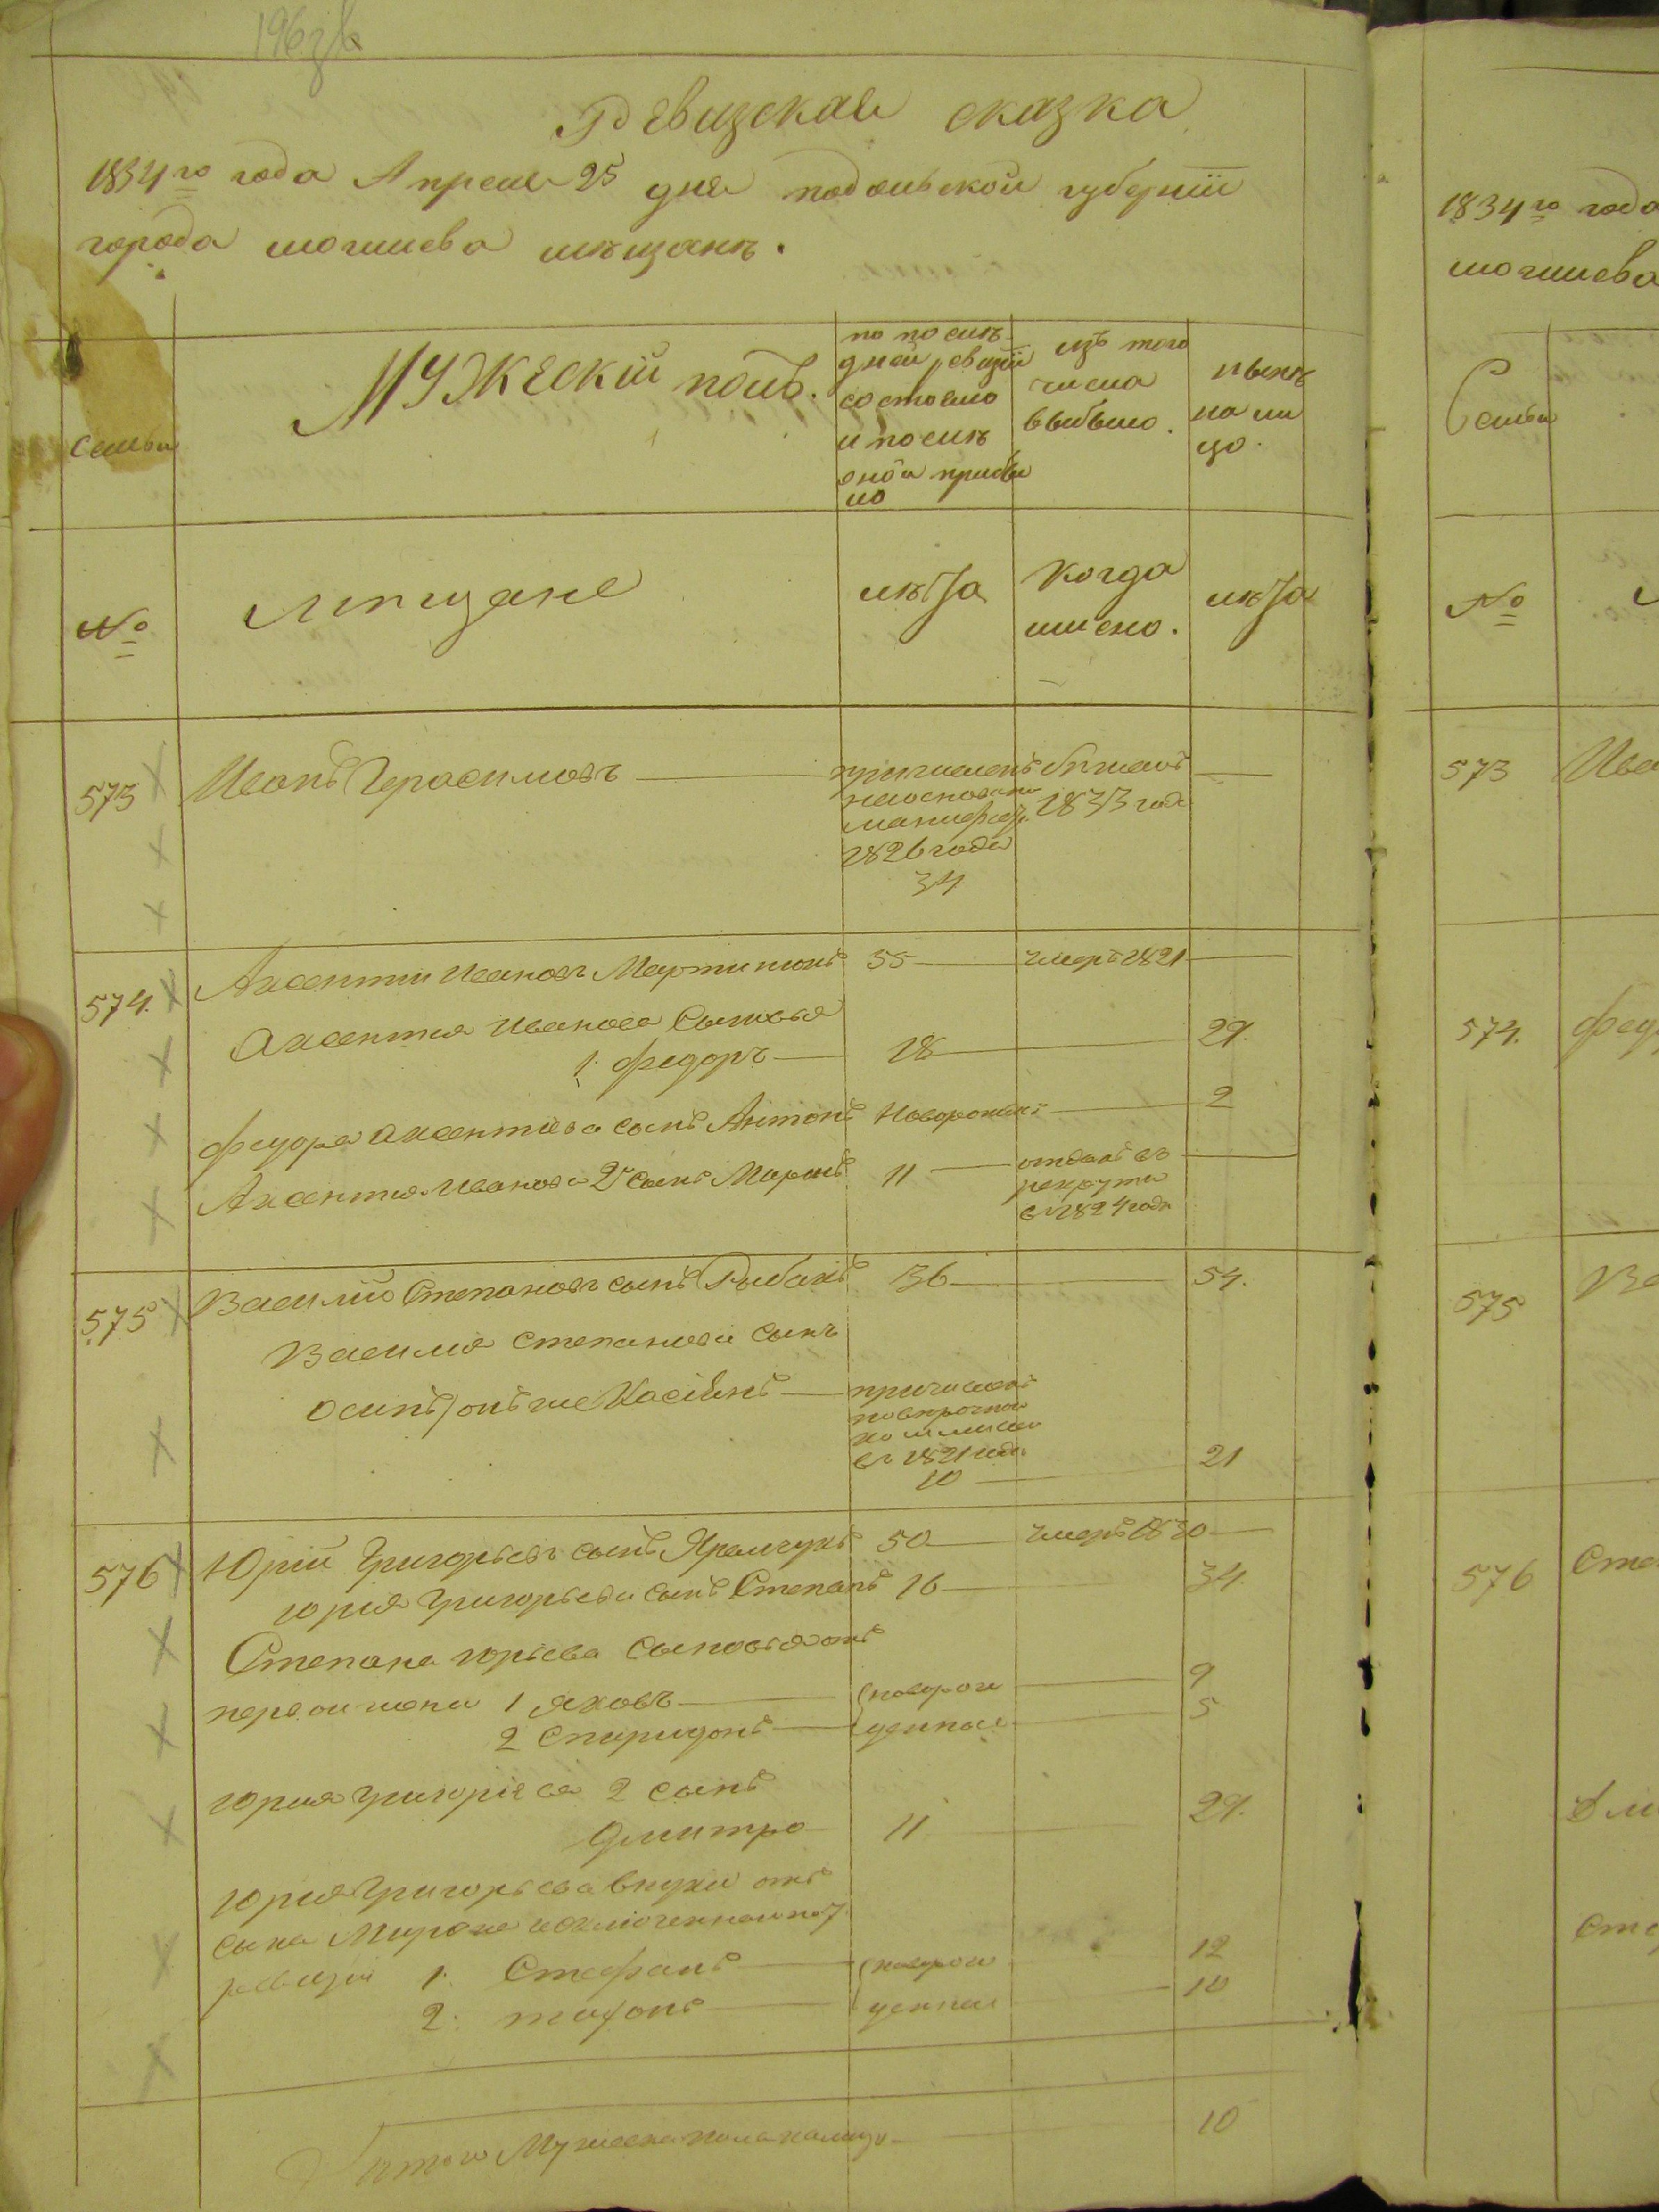 196зв
Ревизская сказка
1834го года Апреля 25 дня подольской губернiи
города могилева мѣщанъ.
Семьи
Мужескiй полъ.
по послѣ
дней ревизiи
состояло
и послѣ
оной прибы
ло
изъ того
числа
выбыло.
нынѣ
на ли
цо.
№
Мѣщане
лѣта
когда
именно.
лѣта
573
Иванъ Герасимовъ
причисленъ
на основанiи
манифес.
1826 года
34
бѣжалъ
1833 года
574.
Аксентiй Ивановъ Мартинюкъ
55
умеръ 1821
Аксентiя Иванова Сыновья
1. федоръ
18
29.
федора аксентiева сынъ Антонъ
Новорожден
2
Аксентiя Иванова 2й сынъ Миронъ
11
отданъ въ
рекруты
въ 1824 годе
575
Василiй Степановъ сынъ Рыбакъ
36
54.
Василiя степанова сынъ
осипъ онъ же Касiянъ
причислен
по
въ 1821 годе
10
21
576
Юрiй Григорьевъ сынъ Яремчукъ
50
умеръ 1830
Юрiя Григорьева сынъ Степанъ
16
34.
Степана юрьева сыновья отъ
первой жены 1 яковъ
новорож
9
2 Спиридонъ
денные
5
Юрия григорiева 2 сынъ
Дмитро
11
29.
Юрiя Григорьева внуки отъ
сына Мирона исключенного по 7
ревизiи 1. Стефанъ
новорож
12
2.
денные
10
Итого Мужеска пола налицо
10
1834го года
могилева
Семьи
№
573
Ива
574.
Фед
575
Ва
576
Сте
Дми
Сте